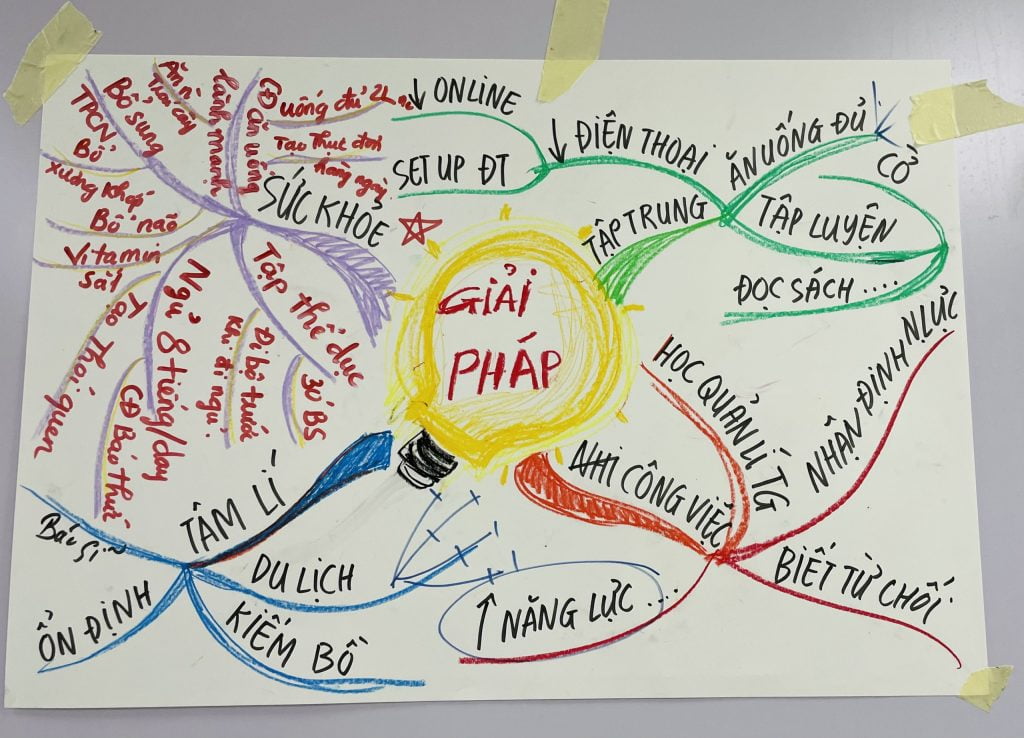 GIẢI
PHÁP
SỨC KHỎE
CĐ ăn uống
lành mạnh
uống đủ 2L
Tạo thực đơn
hằng ngày
Ăn
Trái cây
Bổ sung
TPCN
Bổ
xương khớp
Bổ não
Vitamin
Sắt
Tạo Thói quen
Ngủ 8 tiếng/day
CĐ Báo thức
Tập thể dục
Đi bộ trước
khi đi ngủ.
30' BS
TẬP TRUNG
↓ ĐIỆN THOẠI
↓ ONLINE
SET UP ĐT
ĂN UỐNG ĐỦ
TẬP LUYỆN
CỔ
ĐỌC SÁCH ....
CÔNG VIỆC
HỌC QUẢN LÍ TG
NHẬN ĐỊNH NLỰC
BIẾT TỪ CHỐI
↑ NĂNG LỰC ....
TÂM LÍ
Bác sĩ
ỔN ĐỊNH
DU LỊCH
KIẾM BỒ